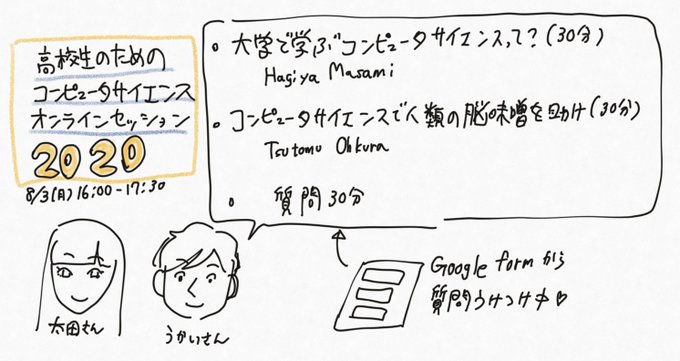 高校生のための
コンピュータサイエンス
オンラインセッション
2020
8/3(月)16:00-17:30
。大学で学ぶコンピュータサイエンスって?(30分)
Hagiya Masami
。コンピュータサイエンスで人類の脳味噌を助け(30分)
Tsutomu Ohkura
。質問30分
太田さん
うかいさん
Google formから
質問うけつけ中♡